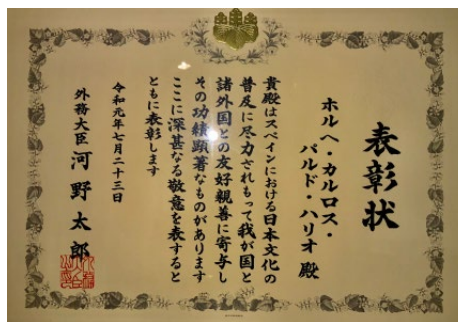 表彰状
ホルヘ・カルロス・
バルド・ハリオ 殿
貴殿はスペインにおける日本文化の
普及に尽力されもって我が国と
諸外国との友好親善に寄与し
その功績顕著なものがあります
ここに深甚なる敬意を表すると
ともに表彰します
令和元年七月二十三日
外務大臣 河野太郎